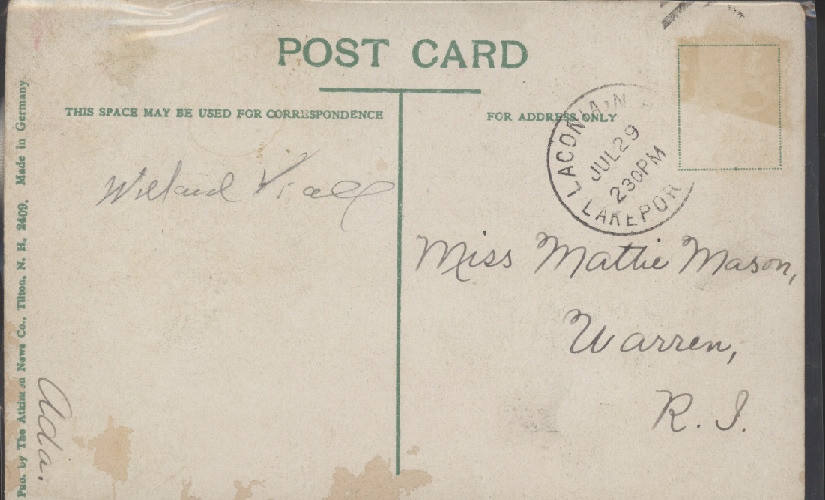 POST CARD
THIS SPACE MAY BE USED FOR CORRESPONDENCE
FOR ADDRESS ONLY
LACONIA, N
JUL 29
230PM
LAKEPOR
Willard Viall
Miss Mattie Mason,
Warren,
R. I.
Ada.
Pub. by The Atkinson News Co., Tilton, N. H. 2409. Made in Germany